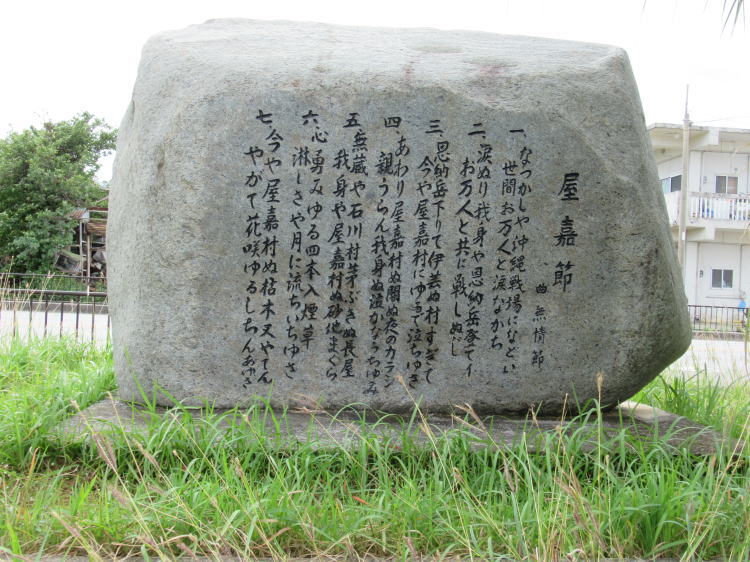 屋嘉節
曲 無情節
一、なつかしや沖縄戦場になとい
世間お万人と涙ながち
二、涙ぬり我身や恩納岳登てィ
お万人と共に戦しぬじ
三、恩納岳下りて伊芸ぬ村すぎて
今や屋嘉村に泣ちゅさ
四、あわり屋嘉村ぬ闇ぬ夜のカラシ
親うらん我身ぬ泣かなうちゅみ
五、無蔵や石川村茅ぶきぬ長屋
我身や屋嘉村ぬ砂地まくら
六、心勇みゆる四本入煙草
淋しさや月に流ちいちゆさ
七、今や屋嘉村ぬ枯木又やてん
やがて花咲ゆるしちんあゆさ